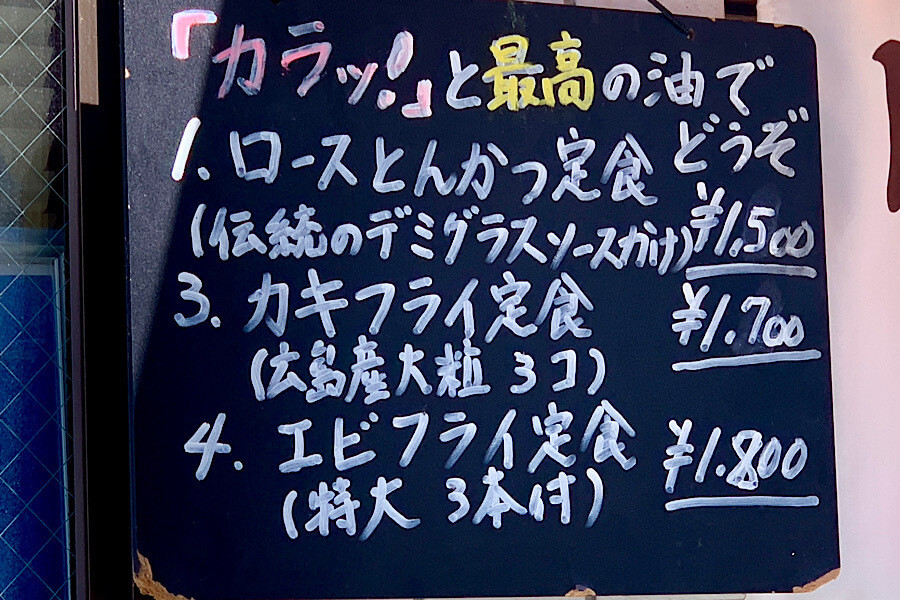 「カラッ!」と最高の油で
どうぞ
1. ロースとんかつ定食
(伝統のデミグラスソースかけ) ¥1.500
3. カキフライ定食 ¥1.700
(広島産大粒 3コ)
4. エビフライ定食 ¥1.800
(特大 3本付)